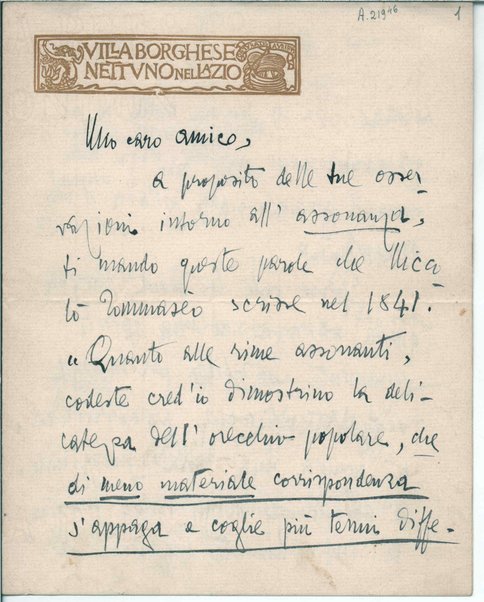 A.21946
1
VILLA BORGHESE
NETTVNO NEL LAZIO
Mio caro amico,
a proposito delle tue osser-
vazioni intorno all' assonanza,
ti mando queste parole che Nicco-
lò Tommasèo scrisse nel 1841.
"Quanto alle rime assonanti,
codeste cred'io dimostrino la deli-
catezza dell' orecchio popolare, che
di meno materiale corrispondenza
s'appaga e coglie più tenui diffe-